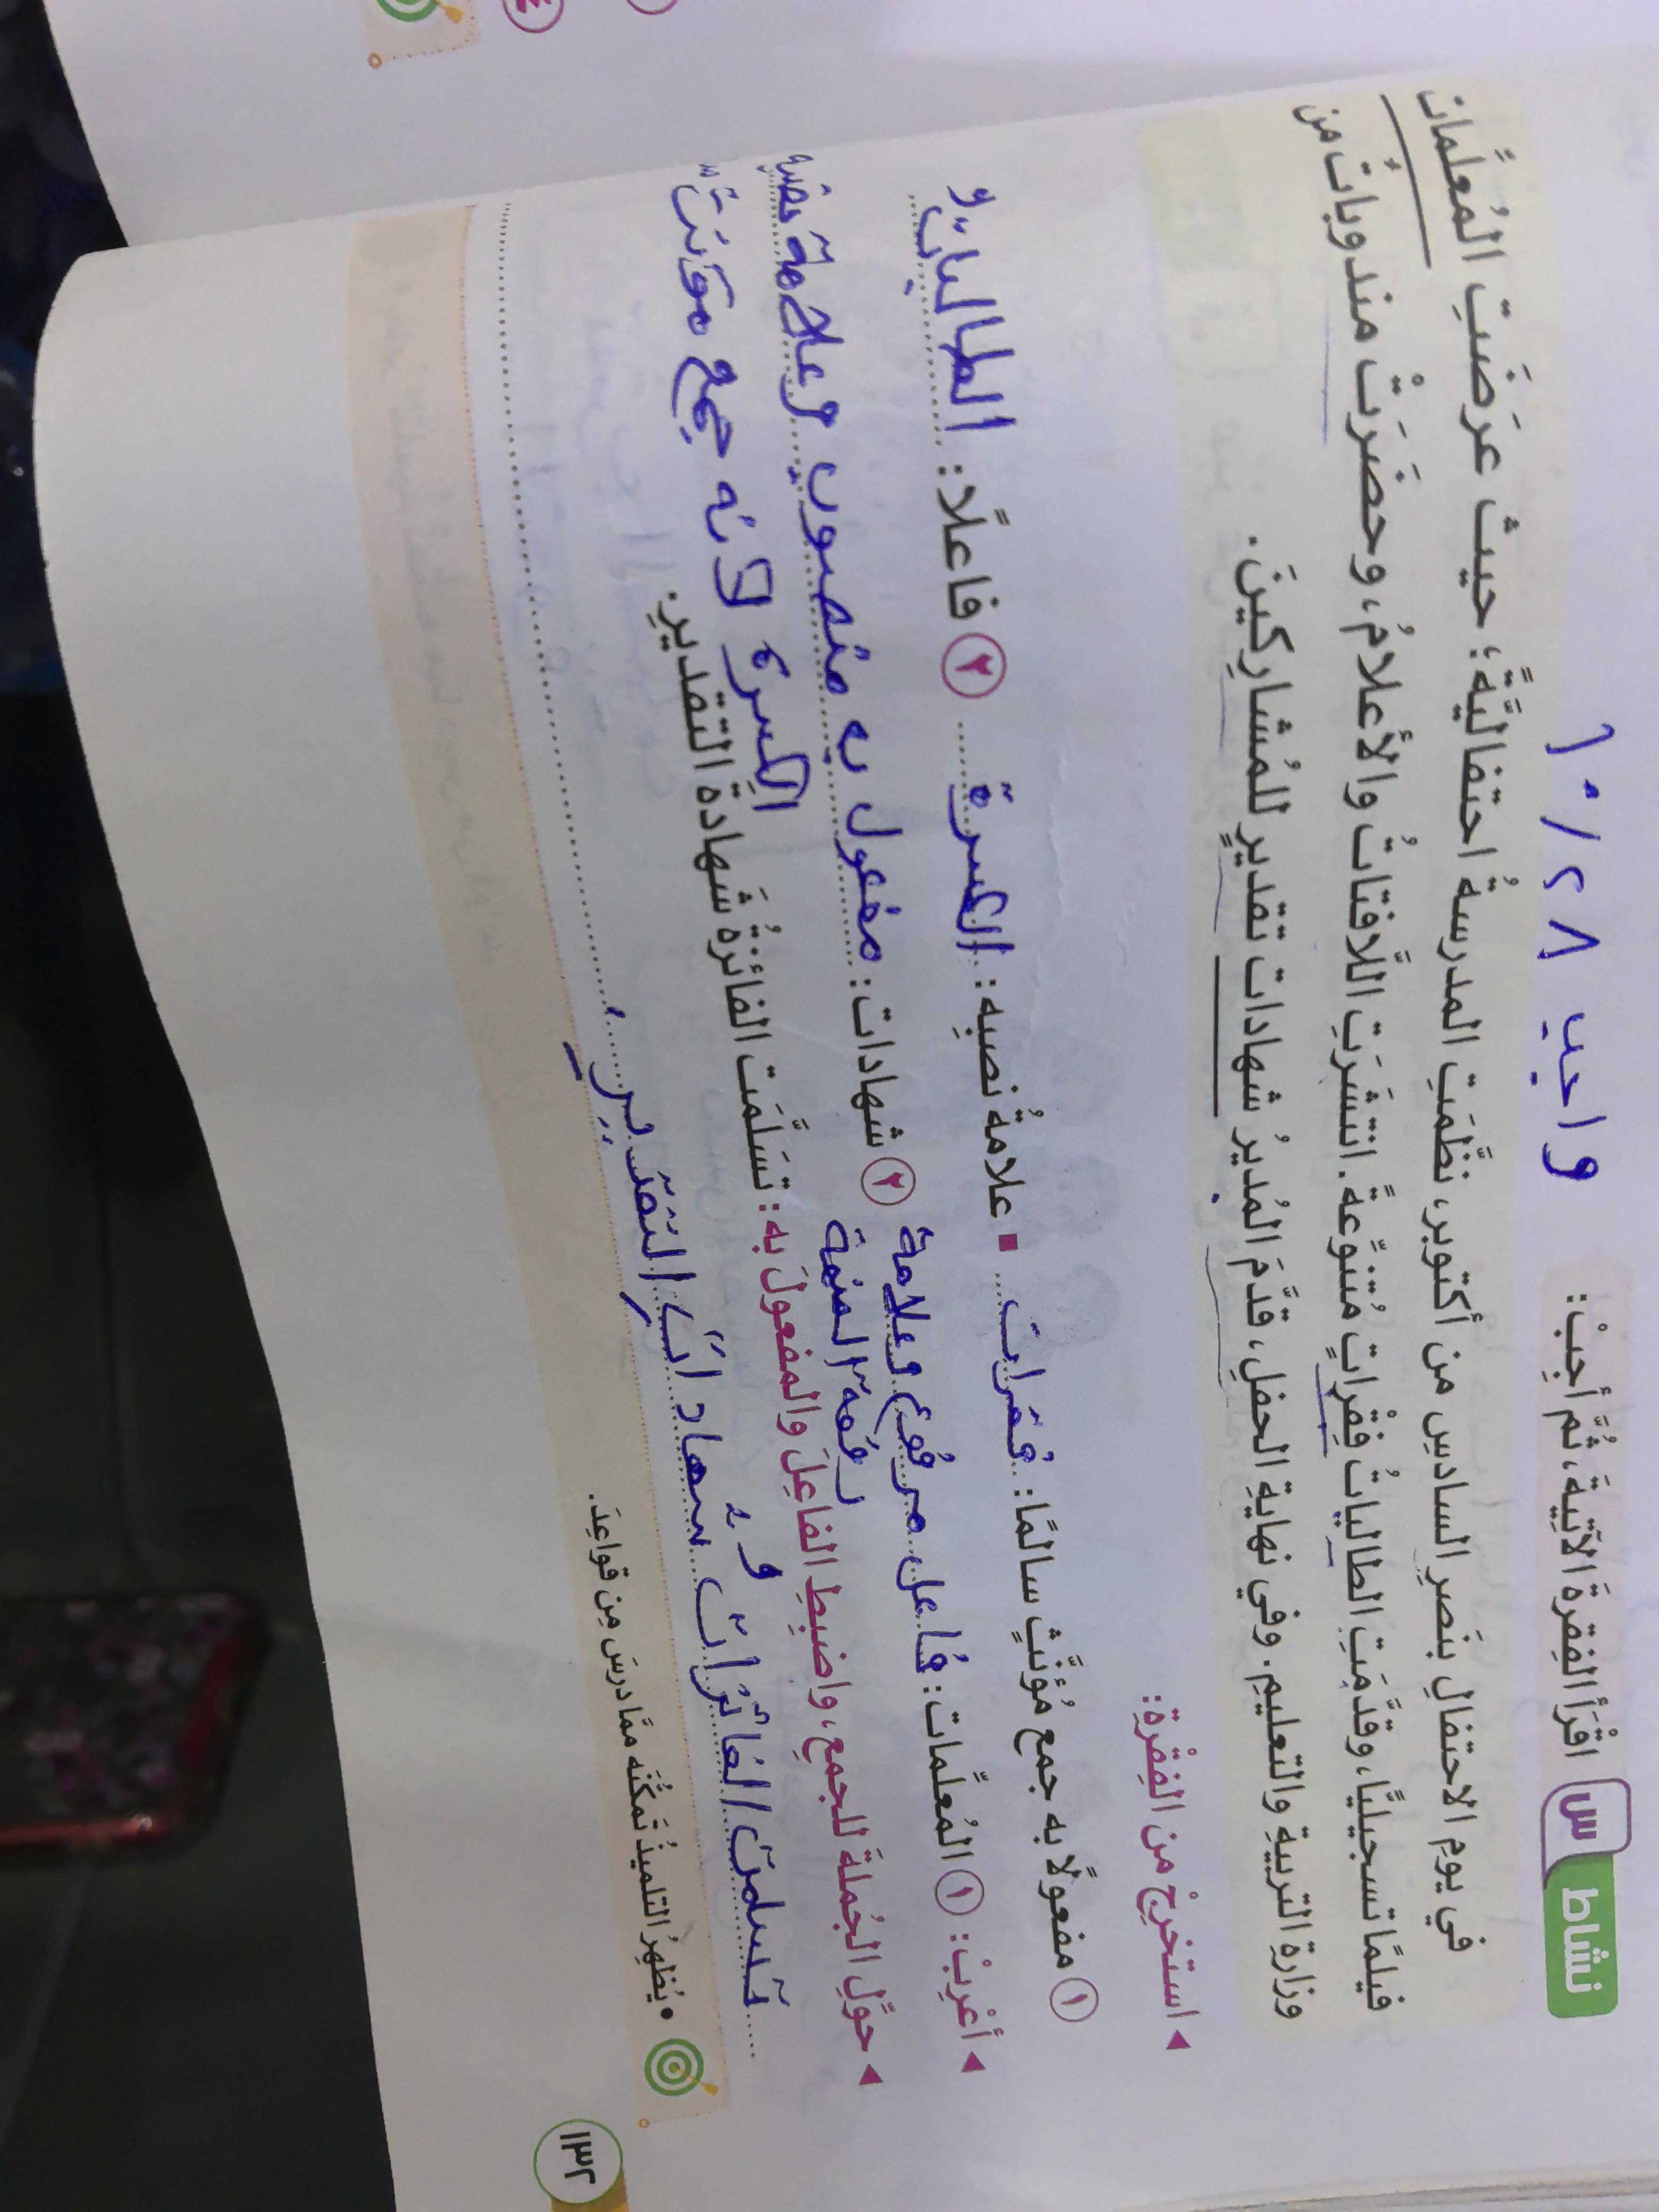 واجب ١٠/٢٨
نشاط س اقْرَأِ الفِقرةَ الآتِيةَ، ثُمَّ أَجِبْ:
في يومِ الاحتفالِ بنَصرِ السادسِ من أكتوبر، نظَّمَتِ المدرسةُ احتفاليَّةً؛ حيث عرَضَتِ المُعلِّمات
فيلمًا تسجيليًّا، وقدَّمَتِ الطالباتُ فِقْراتٍ مُتنوِّعةً. انتشَرَتِ اللَّافتاتُ والأعلامُ، وحضَرَتْ مندوباتٌ من
وزارةِ التربيةِ والتعليمِ. وفي نهايةِ الحفلِ، قدَّمَ المُديرُ شهادات تقديرٍ للمُشارِكينَ.
◀ استخرِجْ من الفِقْرةِ:
١ مفعولًا به جمع مُؤنَّثٍ سالمًا: فقرات ■ علامةُ نصبِه: الكسرة ٢ فاعلًا: الطالباتُ
◀ أَعْرِبْ: ١ المُعلِّمات: فاعل مرفوع وعلامة رفعه الضمة ٢ شهادات: مفعول به منصوب وعلامة نصبه
الكسرة لأنه جمع مؤنث
◀ حوِّلِ الجُملةَ للجمعِ، واضبِطِ الفاعِلَ والمفعولَ به: تسَلَّمَت الفائزةُ شَهادة التقديرِ.
تسلمت الفائزاتُ شهاداتِ التقدير
• يُظهِرُ التلميذُ تَمكُّنَه ممَّا درسَ مِن قواعِدَ.
١٣٢